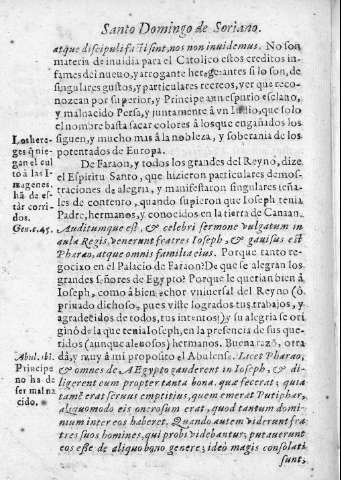 Santo Domingo de Soriano.
atque discipuli facti sint, nos non inuidemus. No son
materia de inuidia para el Catolico estos creditos in-
fames del nueuo, y arrogante heregeantes si lo son, de
singulares gustos, y particulares recreos, ver que reco-
nozcan por superior, y Principe a vn espurio esclauo,
y maluacido Persa, y juntamente à vn Iudio, que solo
el nombre basta sacar colores à los que engañados los
siguen, y mucho mas à la nobleza, y soberania de los
potentados de Europa.
De Faraon, y todos los grandes del Reyno, dize
el Espiritu Santo, que hizieron particulares demos-
traciones de alegria, y manifestaron singulares señá-
les de contento, quando supieron que Ioseph tenia
Padre, hermanos, y conocidos en la tierra de Canaan.
Auditumque est, & celebri sermone vulgatum in
aula Regis, venerunt fratres Ioseph, & gauisus est
Pharao, atque omnis familia eius. Porque tanto re-
gocizo en el Palacio de Faraon? De que se alegran los
grandes señores de Egypto? Porque le querian bien à
Ioseph, como à bienechor vniuersal del Reyno (ò
priuado dichoso, pues viste logrados tus trabajos, y
agradecidos de todos, tus intentos) y su alegria se ori
ginò de la que tenia Ioseph, en la presencia de sus que
ridos (aunque aleuosos) hermanos. Buena razõ, otra
dà, y muy à mi proposito el Abulense. Licet Pharao,
& omnes de AEgypto gauderent in Ioseph, & di-
ligerent eum propter tanta bona, quæ fecerat; quia
tamē erat seruus emptitius, quem emerat Putiphar,
aliquomodo eis onerosum erat, quod tantum domi-
nium inter eos haberet. Quando autem viderunt fra
tres suos homines, qui probi videbantur; putauerunt
eos esse de aliquo bono genere; ideò magis consolati
sunt;
Los here-
ges q̃ nie-
gan el cul
to à las I-
magenes.
hã de es-
tàr corri-
dos.
Gen. c. 45.
Abul. ibi.
Principe
no ha de
ser mal na
cido.